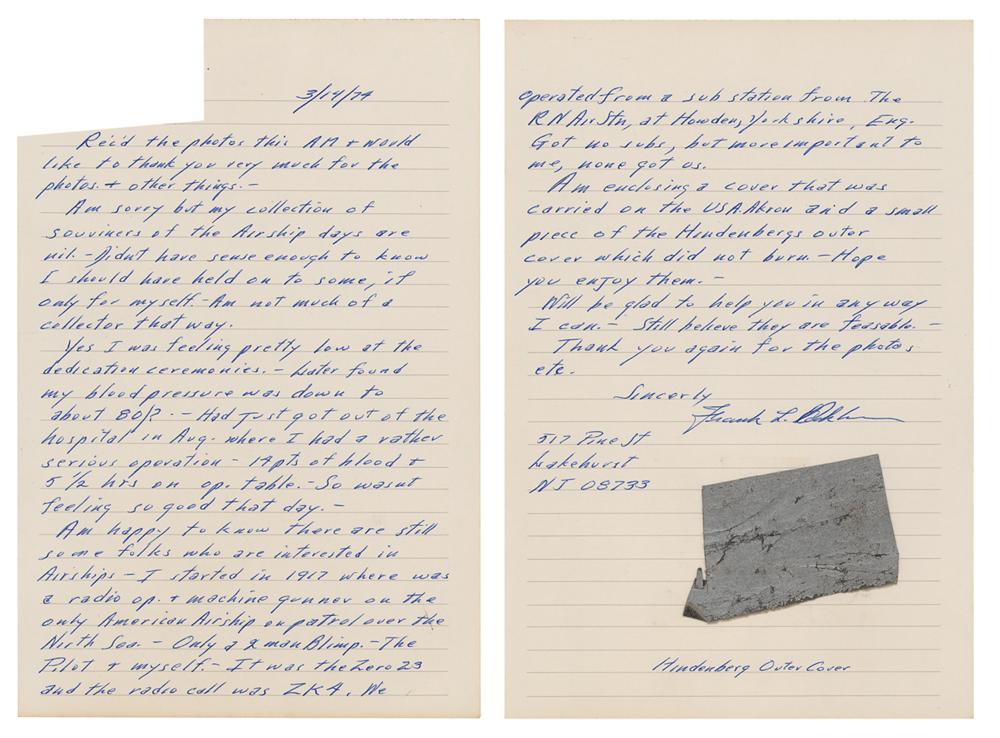 3/14/74
Rec'd the photos this AM + would
like to thank you very much for the
photos. + other things. -
Am sorry but my collection of
souviners of the Airship days are
nil. - Didn't have sense enough to know
I should have held on to some, if
only for myself. - Am not much of a
collector that way.
Yes I was feeling pretty low at the
dedication ceremonies. - Later found
my blood pressure was down to
about 80/?. - Had just got out of the
hospital in Aug. where I had a rather
serious operation - 14 pts of blood +
5 1/2 hrs on op. table. - So wasnt
feeling so good that day. -
Am happy to know there are still
some folks who are interested in
Airships - I started in 1917 where was
a radio op. + machine gunner on the
only American Airship on patrol over the
North Sea. - Only a 2 man Blimp. - The
Pilot + myself. - It was the Zero 23
and the radio call was ZK4. We
operated from a sub station from The
RN Air Stn, at Howden, Yorkshire, Eng.
Got no subs, but more important to
me, none got us.
Am enclosing a cover that was
carried on the USA. Akron and a small
piece of the Hindenbergs outer
cover which did not burn. - Hope
you enjoy them -
Will be glad to help you in any way
I can. - Still believe they are feasable. -
Thank you again for the photos
etc.
Sincerly
Frank L.
517 Pine St
Lakehurst
NJ 08733
Hindenberg Outer Cover